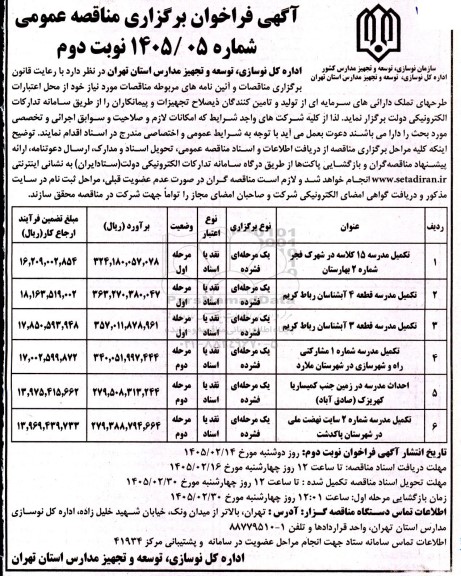 ۱
آگهی فراخوان برگزاری مناقصه عمومی
شماره ۰۵ /۱۴۰۵ نوبت دوم
سازمان نوسازی، توسعه و تجهیز مدارس کشور
اداره کل نوسازی، توسعه و تجهیز مدارس استان تهران
اداره کل نوسازی، توسعه و تجهیز مدارس استان تهران در نظر دارد با رعایت قانون
برگزاری مناقصات و آئین نامه های مربوطه مناقصات مورد نیاز خود از محل اعتبارات
طرحهای تملک دارائی های سرمایه ای از تولید و تامین کنندگان ذیصلاح تجهیزات و پیمانکاران را از طریق سامانه تدارکات
الکترونیکی دولت برگزار نماید. لذا از کلیه شرکت های واجد شرایط که امکانات لازم و صلاحیت و سوابق اجرائی و تخصصی
مورد بحث را دارا می باشند دعوت بعمل می آید با توجه به شرایط عمومی و اختصاصی مندرج در اسناد اقدام نمایند. توضیح
اینکه کلیه مراحل برگزاری مناقصه از دریافت اطلاعات و اسناد مناقصه عمومی، تحویل اسناد و مدارک، ارسال دعوتنامه، ارائه
پیشنهاد مناقصه گران و بازگشایی پاکت‌ها از طریق درگاه سامانه تدارکات الکترونیکی دولت(ستادایران) به نشانی اینترنتی
www.setadiran.ir انجام خواهد شد و لازم است مناقصه گران در صورت عدم عضویت قبلی، مراحل ثبت نام در سایت
مذکور و دریافت گواهی امضای الکترونیکی شرکت و صاحبان امضای مجاز را تواماً جهت شرکت در مناقصه محقق سازند.
ردیف عنوان نوع برگزاری نوع اعتبار وضعیت برآورد (ریال) مبلغ تضمین فرآیند ارجاع کار(ریال)
۱ تکمیل مدرسه ۱۵ کلاسه در شهرک فجر شماره ۲ بهارستان یک مرحله‌ای فشرده نقد یا اسناد مرحله اول ۳۲۴,۱۸۰,۰۵۷,۰۷۸ ۱۶,۲۰۹,۰۰۲,۸۵۴
۲ تکمیل مدرسه قطعه ۴ آبشناسان رباط کریم یک مرحله‌ای فشرده نقد یا اسناد مرحله اول ۳۶۳,۲۷۰,۳۸۰,۰۴۷ ۱۸,۱۶۳,۵۱۹,۰۰۲
۳ تکمیل مدرسه قطعه ۳ آبشناسان رباط کریم یک مرحله‌ای فشرده نقد یا اسناد مرحله اول ۳۵۷,۰۱۱,۸۷۸,۹۶۱ ۱۷,۸۵۰,۵۹۳,۹۴۸
۴ تکمیل مدرسه شماره ۱ مشارکتی راه و شهرسازی در شهرستان ملارد یک مرحله‌ای فشرده نقد یا اسناد مرحله دوم ۳۴۰,۰۵۱,۹۹۷,۴۴۴ ۱۷,۰۰۲,۵۹۹,۸۷۲
۵ احداث مدرسه در زمین جنب کمیساریا کهریزک (صادق آباد) یک مرحله‌ای فشرده نقد یا اسناد مرحله دوم ۲۷۹,۵۰۸,۳۱۳,۲۴۴ ۱۳,۹۷۵,۴۱۵,۶۶۲
۶ تکمیل مدرسه شماره ۲ سایت نهضت ملی در شهرستان پاکدشت یک مرحله‌ای فشرده نقد یا اسناد مرحله دوم ۲۷۹,۳۸۸,۷۹۴,۶۶۴ ۱۳,۹۶۹,۴۳۹,۷۳۳
تاریخ انتشار آگهی فراخوان نوبت دوم: روز دوشنبه مورخ ۱۴۰۵/۰۲/۱۴
مهلت دریافت اسناد مناقصه: تا ساعت ۱۲ روز چهارشنبه مورخ ۱۴۰۵/۰۲/۱۶
مهلت تحویل اسناد مناقصه تکمیل شده : تا ساعت ۱۲ روز چهارشنبه مورخ ۱۴۰۵/۰۲/۳۰
زمان بازگشایی مرحله اول: ساعت ۱۲:۰۱ روز چهارشنبه مورخ ۱۴۰۵/۰۲/۳۰
اطلاعات تماس دستگاه مناقصه گزار: آدرس : تهران، بالاتر از میدان ونک، خیابان شهید خلیل زاده، اداره کل نوسازی
مدارس استان تهران، واحد قراردادها و تلفن ۱-۸۸۷۷۹۵۱۰
اطلاعات تماس سامانه ستاد جهت انجام مراحل عضویت در سامانه و پشتیبانی مرکز ۴۱۹۳۴
اداره کل نوسازی، توسعه و تجهیز مدارس استان تهران